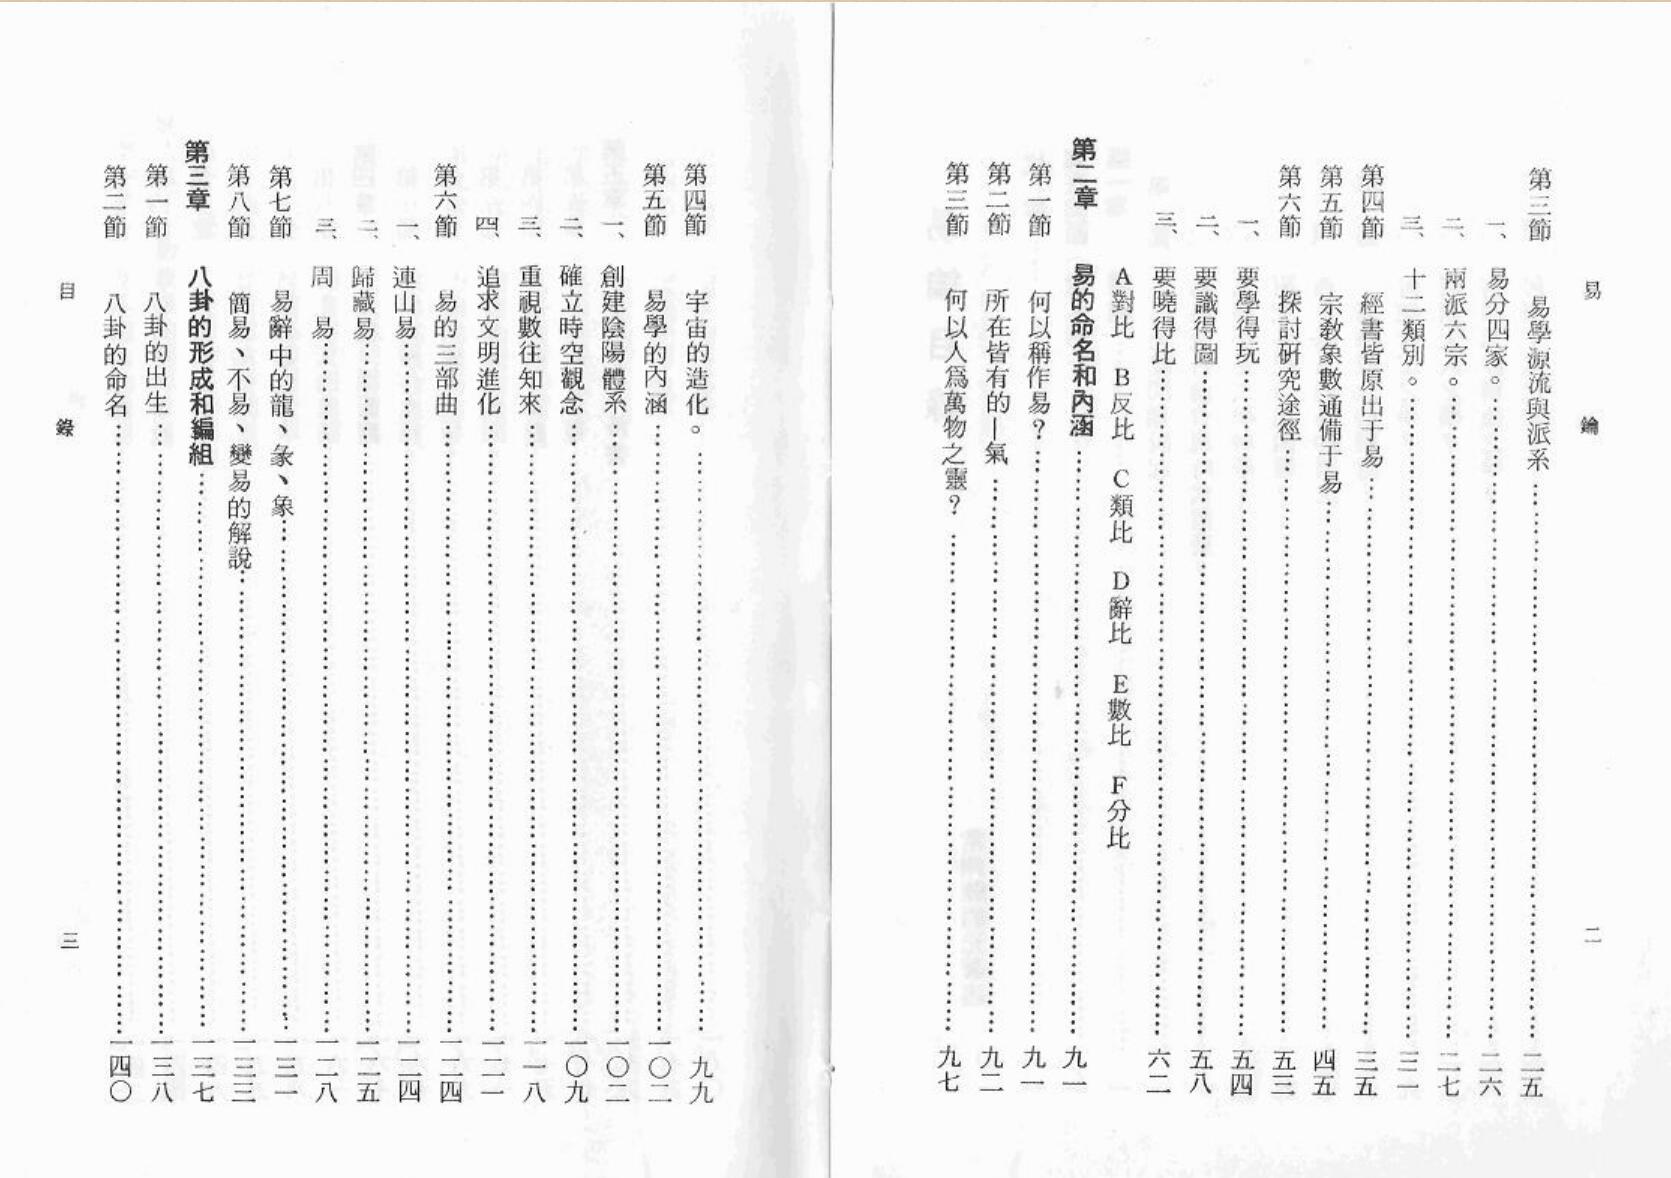 易鑰
二
第三節 易學源流與派系……二五
一、易分四家。……二六
二、兩派六宗。……二七
三、十二類別。……三二
第四節 經書皆原出于易……三五
第五節 宗教象數通備于易……四五
第六節 探討研究途徑……五三
一、要學得玩……五四
二、要識得圖……五八
三、要曉得比……六二
A對比 B反比 C類比 D辭比 E數比 F分比
第二章 易的命名和內涵……九一
第一節 何以稱作易？……九一
第二節 所在皆有的—氣……九二
第三節 何以人爲萬物之靈？……九七
第四節 宇宙的造化。……九九
第五節 易學的內涵……一〇二
一、創建陰陽體系……一〇二
二、確立時空觀念……一〇九
三、重視數往知來……一一八
四、追求文明進化……一二一
第六節 易的三部曲……一二四
一、連山易……一二四
二、歸藏易……一二五
三、周易……一二八
第七節 易辭中的龍、彖、象……一三一
第八節 簡易、不易、變易的解說……一三三
第三章 八卦的形成和編組……一三七
第一節 八卦的出生……一三八
第二節 八卦的命名……一四〇
目錄
三